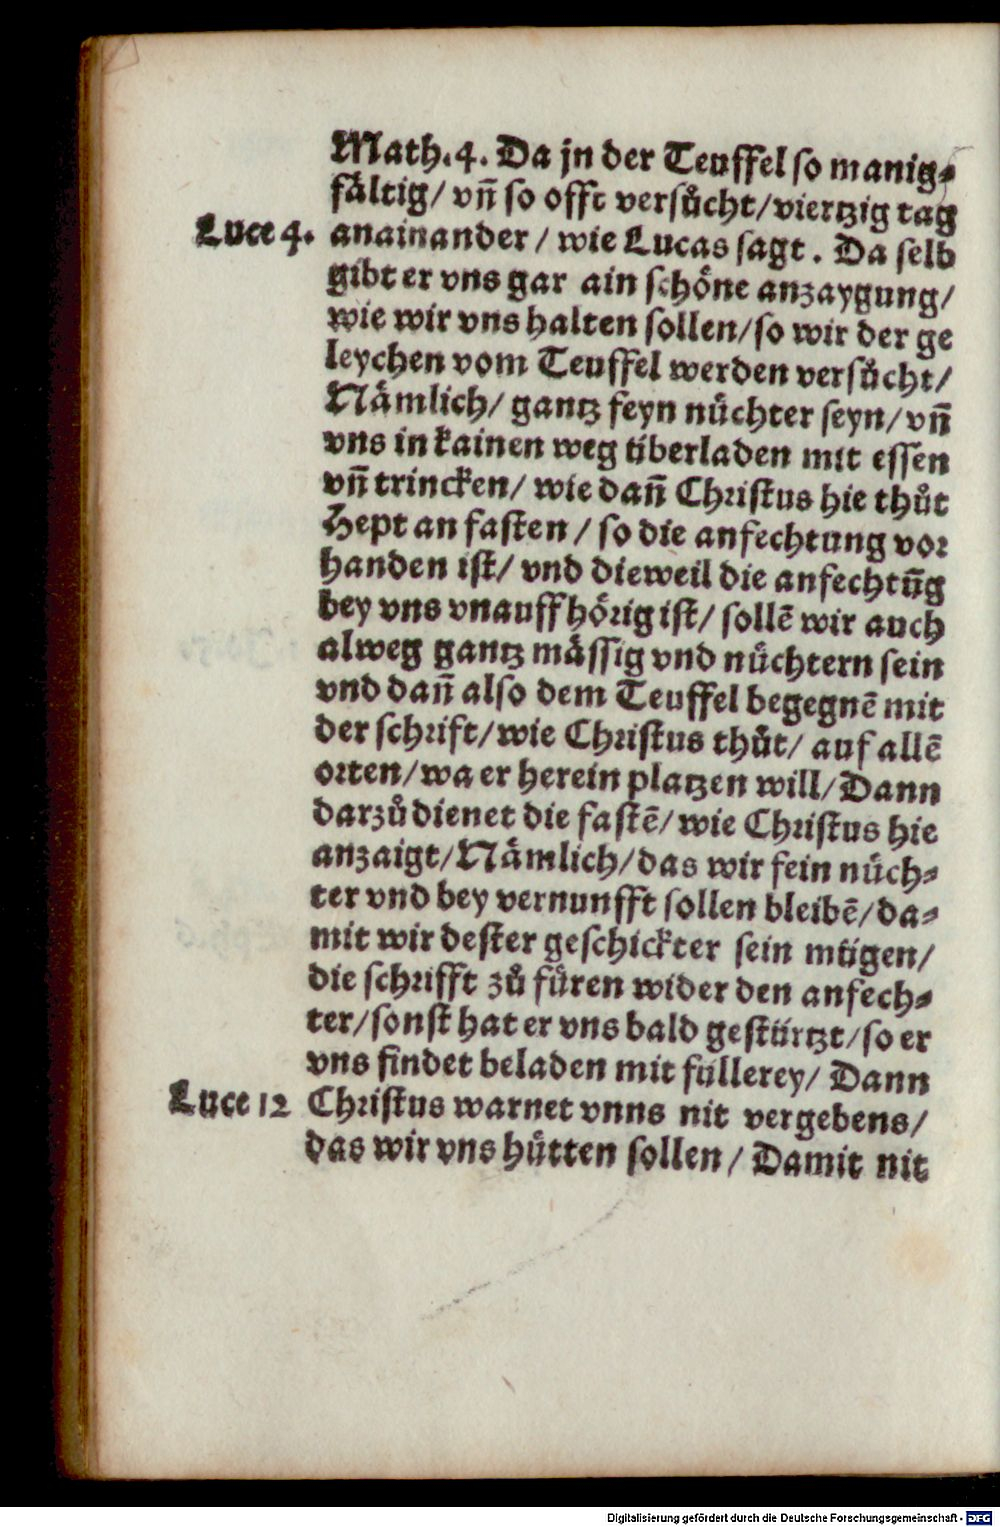 Math.4. Da jn der Teuffel so manig⸗
fältig/ vñ so offt versůcht/viertzig tag
Luce 4. anainander / wie Lucas sagt. Da selb
gibt er vns gar ain schöne anzaygung/
wie wir vns halten sollen/so wir der ge
leychen vom Teuffel werden versůcht/
Nämlich/ gantz feyn nüchter seyn/ vñ
vns in kainen weg überladen mit essen
vñ trincken/ wie dañ Christus hie thůt
Hept an fasten / so die anfechtung vor
handen ist/ vnd dieweil die anfechtūg
bey vns vnauffhörig ist/ sollē wir auch
alweg gantz mässig vnd nüchtern sein
vnd dañ also dem Teuffel begegnē mit
der schrift/wie Christus thůt/ auf allē
orten/wa er herein platzen will/Dann
darzů dienet die fastē/wie Christus hie
anzaigt/Nämlich/das wir fein nüch⸗
ter vnd bey vernunfft sollen bleibē/da⸗
mit wir dester geschickter sein mügen/
die schrifft zů füren wider den anfech⸗
ter/sonst hat er vns bald gestürtzt/so er
vns findet beladen mit füllerey/ Dann
Luce 12 Christus warnet vnns nit vergebens/
das wir vns hütten sollen/ Damit nit
Digitalisierung gefördert durch die Deutsche Forschungsgemeinschaft - DFG